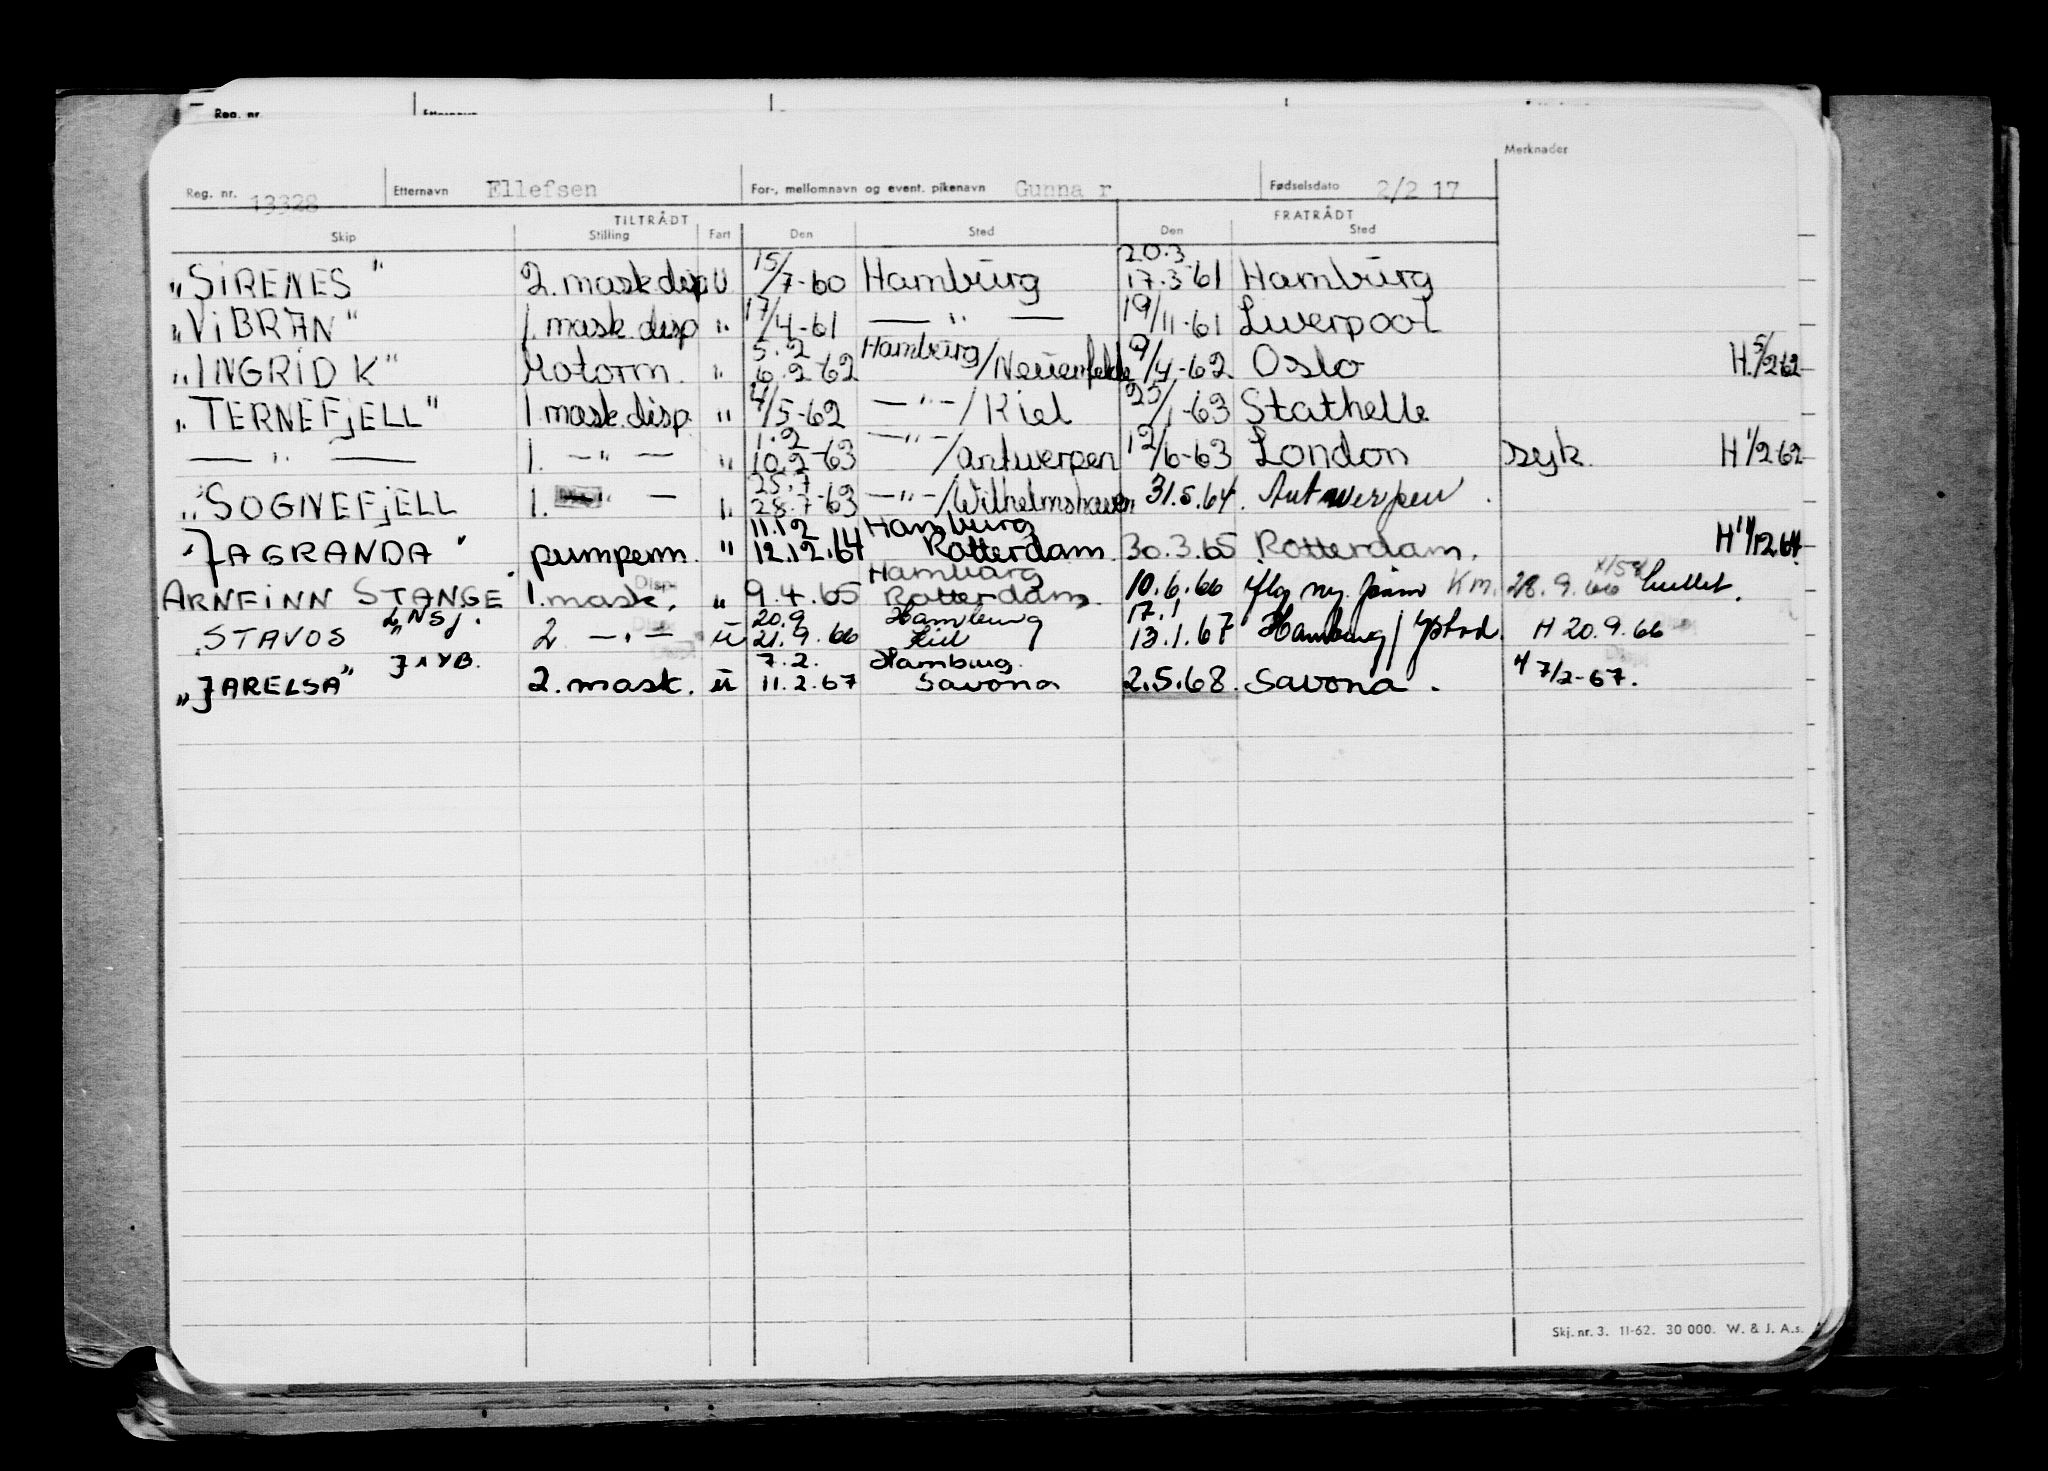 Reg. nr.
Merknader
Reg. nr. 13328 Etternavn Ellefsen For-, mellomnavn og event. pikenavn Gunnar Fødselsdato 2/2 17
TILTRÅDT FRATRÅDT
Skip Stilling Fart Den Sted Den Sted
"SIRENES" 2. mask disp U 15/7-60 Hamburg 20.3 17.3 61 Hamburg
"VIBRAN" 1. mask. disp " 17/4-61 — " — 19/11-61 Liverpool
"INGRID K" Motorm. " 5.2 6.2-62 Hamburg/Neuenfelde 9/4-62 Oslo H. 5/2 62
"TERNEFJELL" 1. mask. disp. " 4/5-62 — " — /Kiel 25/1-63 Stathelle
— " — 1. — " — " 1.2 10.2-63 — " — /Antwerpen 12/6-63 London syk. H 1/2 62
"SOGNEFJELL 1. " — " 25.7 28.7-63 — " — /Wilhelmshaven 31.5.64. Antwerpen.
"JAGRANDA" pumpem. " 11.12 12.12.64 Hamburg Rotterdam. 30.3.65 Rotterdam. H 11/12 64.
ARNFINN STANGE 1. mask. Disp. " 9.4.65 Hamburg Rotterdam. 10.6.66 iflg ny. Km. 28.9.66
STAVOS LNSJ. 2 — " — U 20.9 21.9.66 Hamburg Kiel 17.1 13.1.67 Hamburg/Ystad. H 20.9.66
"JARELSA" JXYB. 2. mask. U 7.2. 11.2.67 Hamburg. Savona 2.5.68. Savona. H 7/2-67.
Skj. nr. 3. 11-62. 30 000. W. & J. A.s.